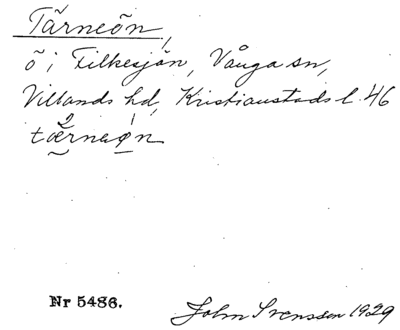 Tärneön,
ö i Filkesjön, Vånga sn,
Villands hd, Kristianstads l. 46
tærnaøn
Nr 5486.
John Svensson 1929